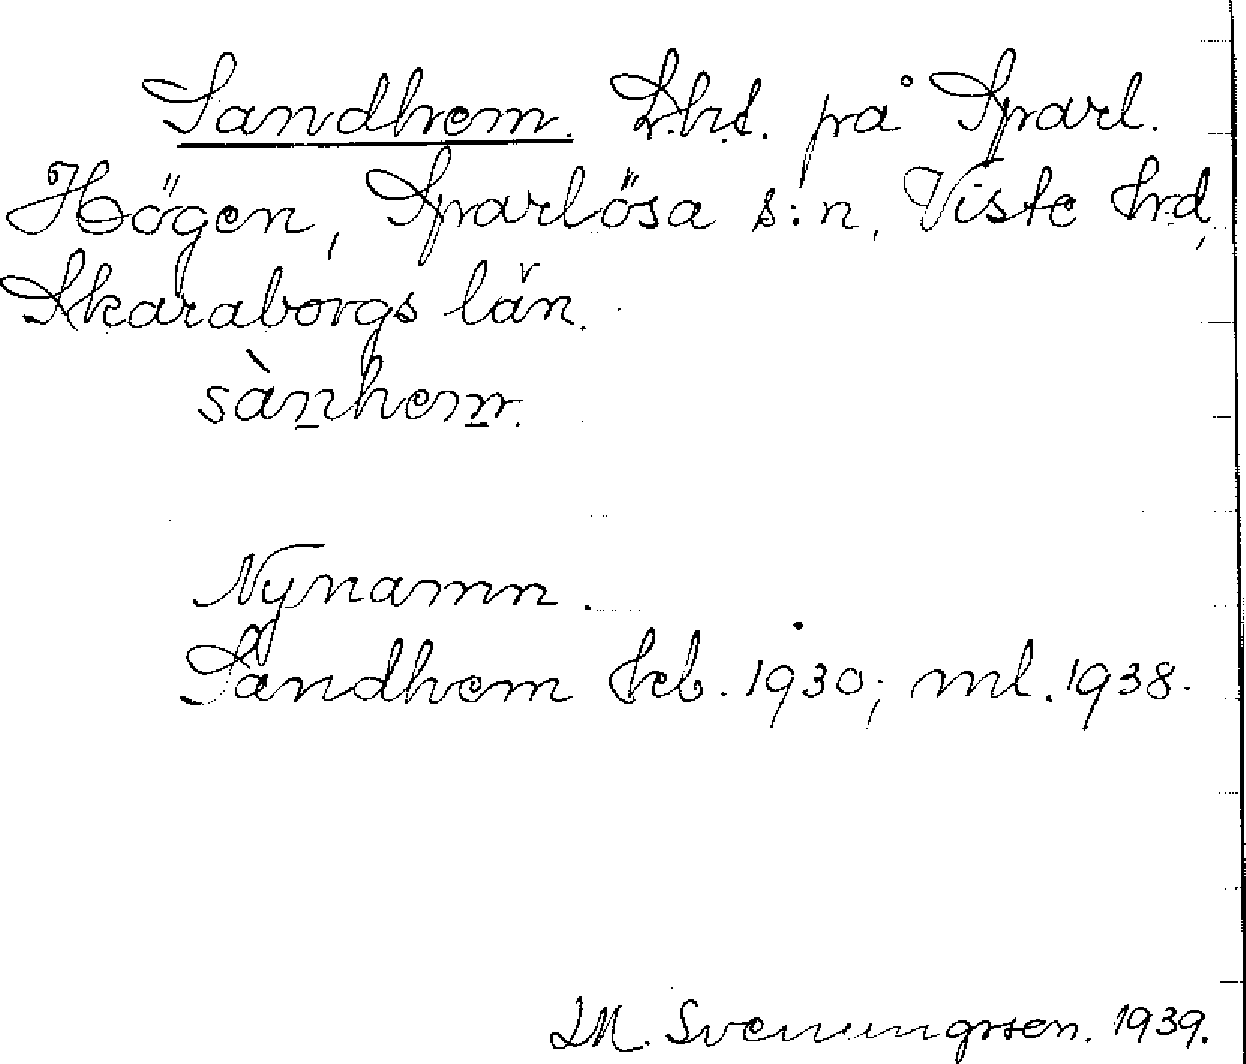 Sandhem. Lht. på Sparl.
Högen, Sparlösa s:n, Viste hrd,
Skaraborgs län.
sànhem.
Nynamn.
Sandhem hcb. 1930; ml. 1938.
I.M. Svenungsson. 1939.